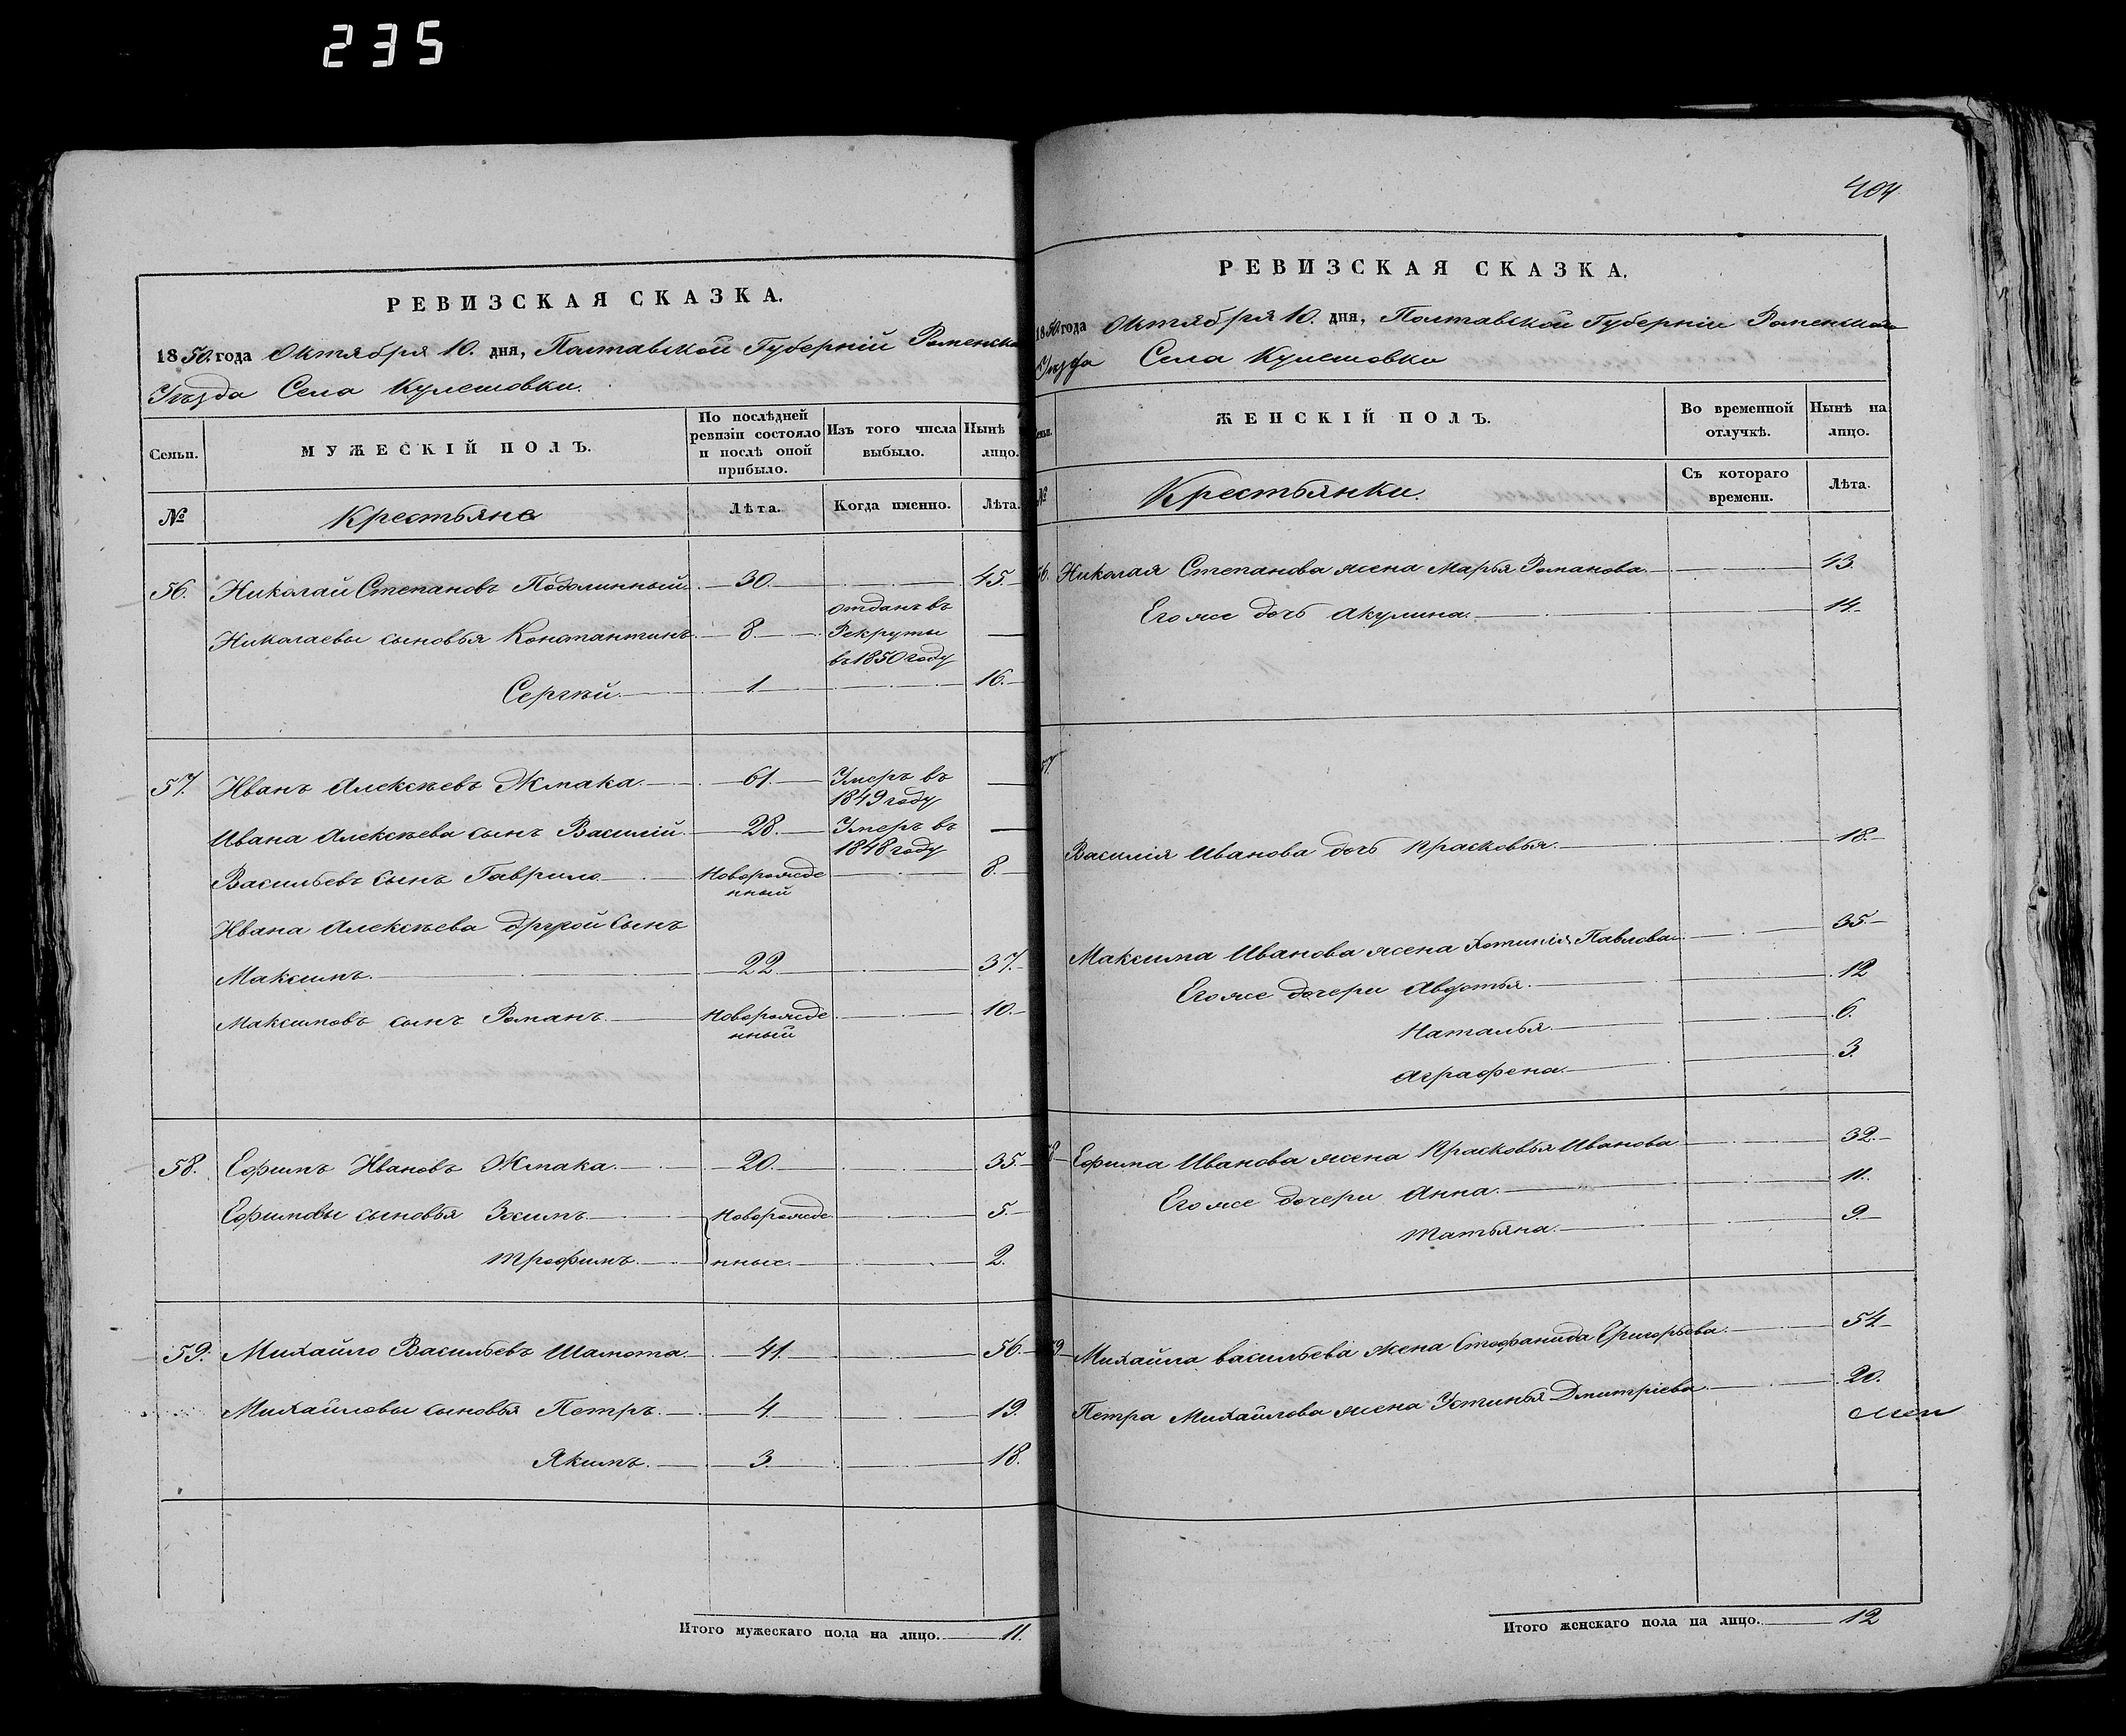 235
РЕВИЗСКАЯ СКАЗКА.
1850 года Октября 10. дня, Полтавской Губерній Роменска
Уѣзда Села Кулешовки.
Семьи.
МУЖЕСКІЙ ПОЛЪ.
По послѣдней ревизіи состояло и послѣ оной прибыло.
Изъ того числа выбыло.
Нынѣ лицо.
№
Крестьяне
Лѣта.
Когда именно.
Лѣта.
56. Николай Степановъ Подолинный 30. 45.
Николаевы сыновья Константинъ 8. отданъ въ Рекруты въ 1850 году
Сергѣй 1 16.
57. Иванъ Алексѣевъ Жмака 61. Умеръ въ 1849 году
Ивана Алексѣева сынъ Василій 28. Умеръ въ 1848 году
Васильевъ сынъ Гаврило Новорожденный 8.
Ивана Алексѣева другой сынъ
Максимъ. 22 37.
Максимовъ сынъ Романъ Новорожденный 10.
58. Ефимъ Ивановъ Жмака 20 35.
Ефимовы сыновья Якимъ Новорожде 5.
Трофимъ нные. 2.
59. Михайло Васильевъ Шамота 41. 56.
Михайловы сыновья Петръ 4. 19.
Якимъ. 3. 18.
Итого мужескаго пола на лицо. 11.
404
РЕВИЗСКАЯ СКАЗКА.
1850 года Октября 10. дня, Полтавской Губерніи Роменскаго
Уѣзда Села Кулешовки
ЖЕНСКІЙ ПОЛЪ.
Во временной отлучкѣ.
Нынѣ на лицо.
№
Крестьянки.
Съ котораго времени.
Лѣта.
56. Николая Степанова жена Марья Романова 43.
Его же дочь Акулина. 14.
57.
Василія Иванова дочь Прасковья. 18.
Максима Иванова жена Фотинія Павлова 35.
Его же дочери Авдотья. 12
Наталья. 6.
Аграфена. 3.
58 Ефима Иванова жена Прасковья Иванова 32.
Его же дочери Анна. 11.
Татьяна. 9.
59 Михайла Васильева жена Стефанида Григорьева 54
Петра Михайлова жена Устинья Дмитріева 20.
Итого женскаго пола на лицо. 12